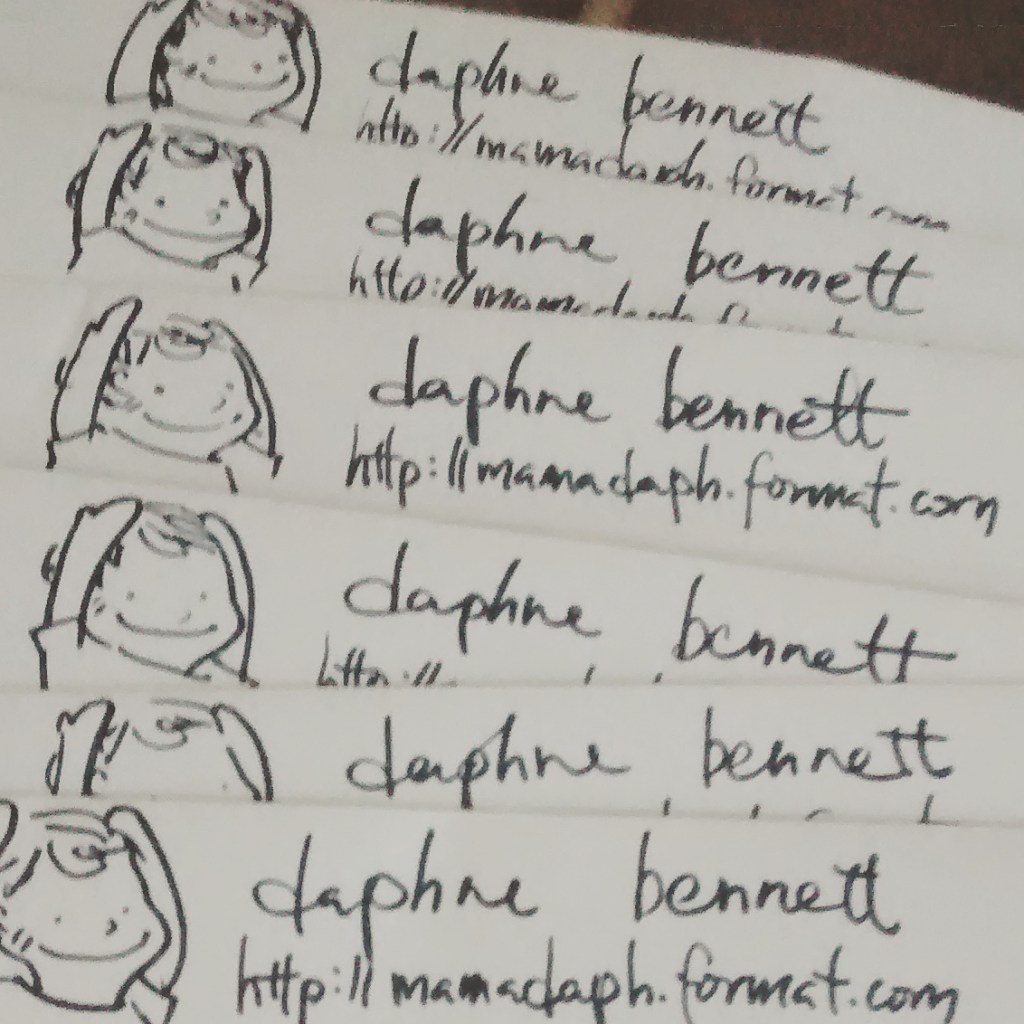 daphne bennett
http://mamadaph.format
daphne bennett
http://mamadaph
daphne bennett
http://mamadaph.format.com
daphne bennett
http://
daphne bennett
daphne bennett
http://mamadaph.format.com